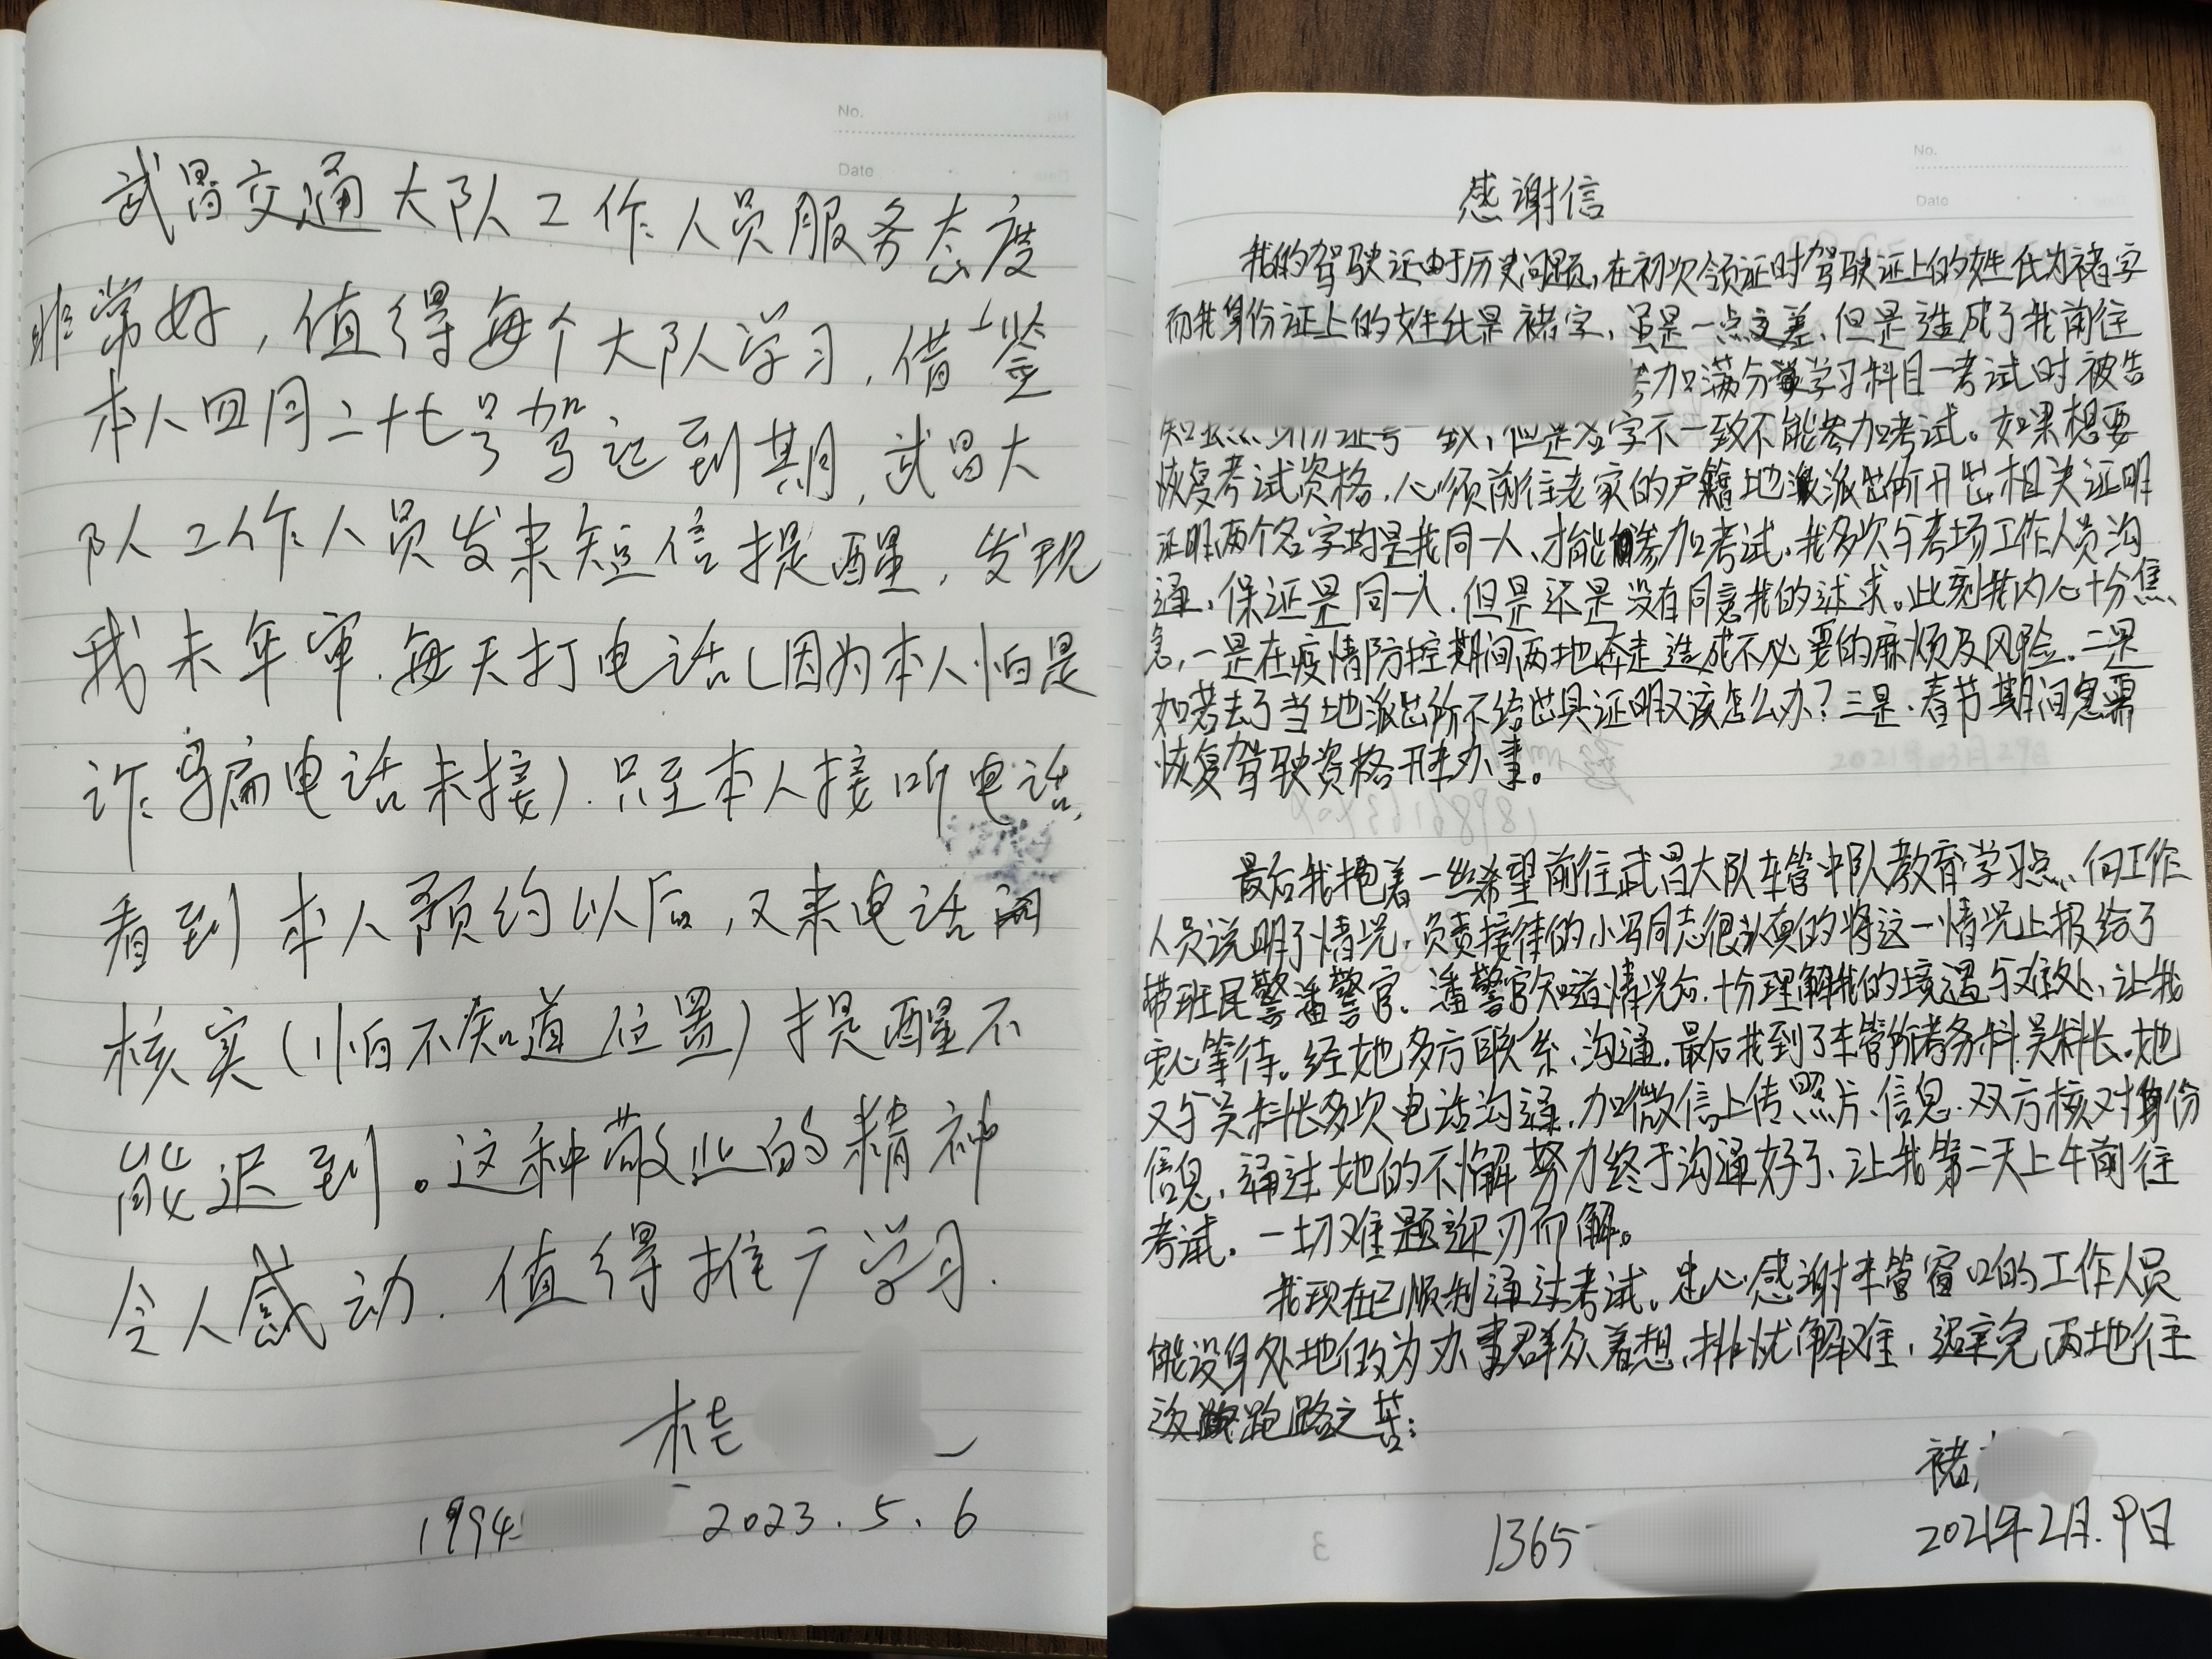 No.
Date
武昌交通大队工作人员服务态度
非常好，值得每个大队学习，借鉴
本人四月二十七号驾证到期，武昌大
队工作人员发来短信提醒，发现
我未年审.每天打电话(因为本人怕是
诈骗电话未接).只至本人接听电话,
看到本人预约以后，又来电话
核实(怕不知道位置)提醒不
能迟到。这种敬业的精神
令人感动.值得推广学习.
1994 2023.5.6
No.
Date
感谢信
我的驾驶证由于历史问题，在初次领证时驾驶证上的姓氏为褚字
而我身份证上的姓氏是褚字，虽是一点之差，但是造成了我前往
加满分学习科目一考试时被告
身份证号一致，但是签字不一致不能参加考试。如果想要
恢复考试资格，心须前往老家的户籍地派出所开出相关证明
证明两个名字均是我同一人、才能参加考试，我多次与考场工作人员沟
通，保证是同一人.但是还是没有同意我的诉求。此刻我内心十分焦
急，一是在疫情防控期间两地奔走造成不必要的麻烦及风险.二是
如若去了当地派出所不给出具证明又该怎么办？三是、春节期间急需
恢复驾驶资格开车办事。
最后我抱着一丝希望前往武昌大队车管中队教育学习点、向工作
人员说明了情况，负责接待的小冯同志很认真的将这一情况上报给了
带班民警潘警官、潘警官知道情况后.十分理解我的境遇与难处、让我
安心等待。经她多方联系、沟通.最后找到了车管所考务科吴科长.她
又与吴科长多次电话沟通，加微信上传照片、信息.双方核对身份
信息，通过她的不懈努力终于沟通好了、让我第二天上午前往
考试。一切难题迎刃而解。
我现在已顺利通过考试。忠心感谢车管窗口的工作人员
能设身处地的为办事群众着想、排忧解难，避免两地往
返跑路之苦:
褚
1365 2021年2月.9日